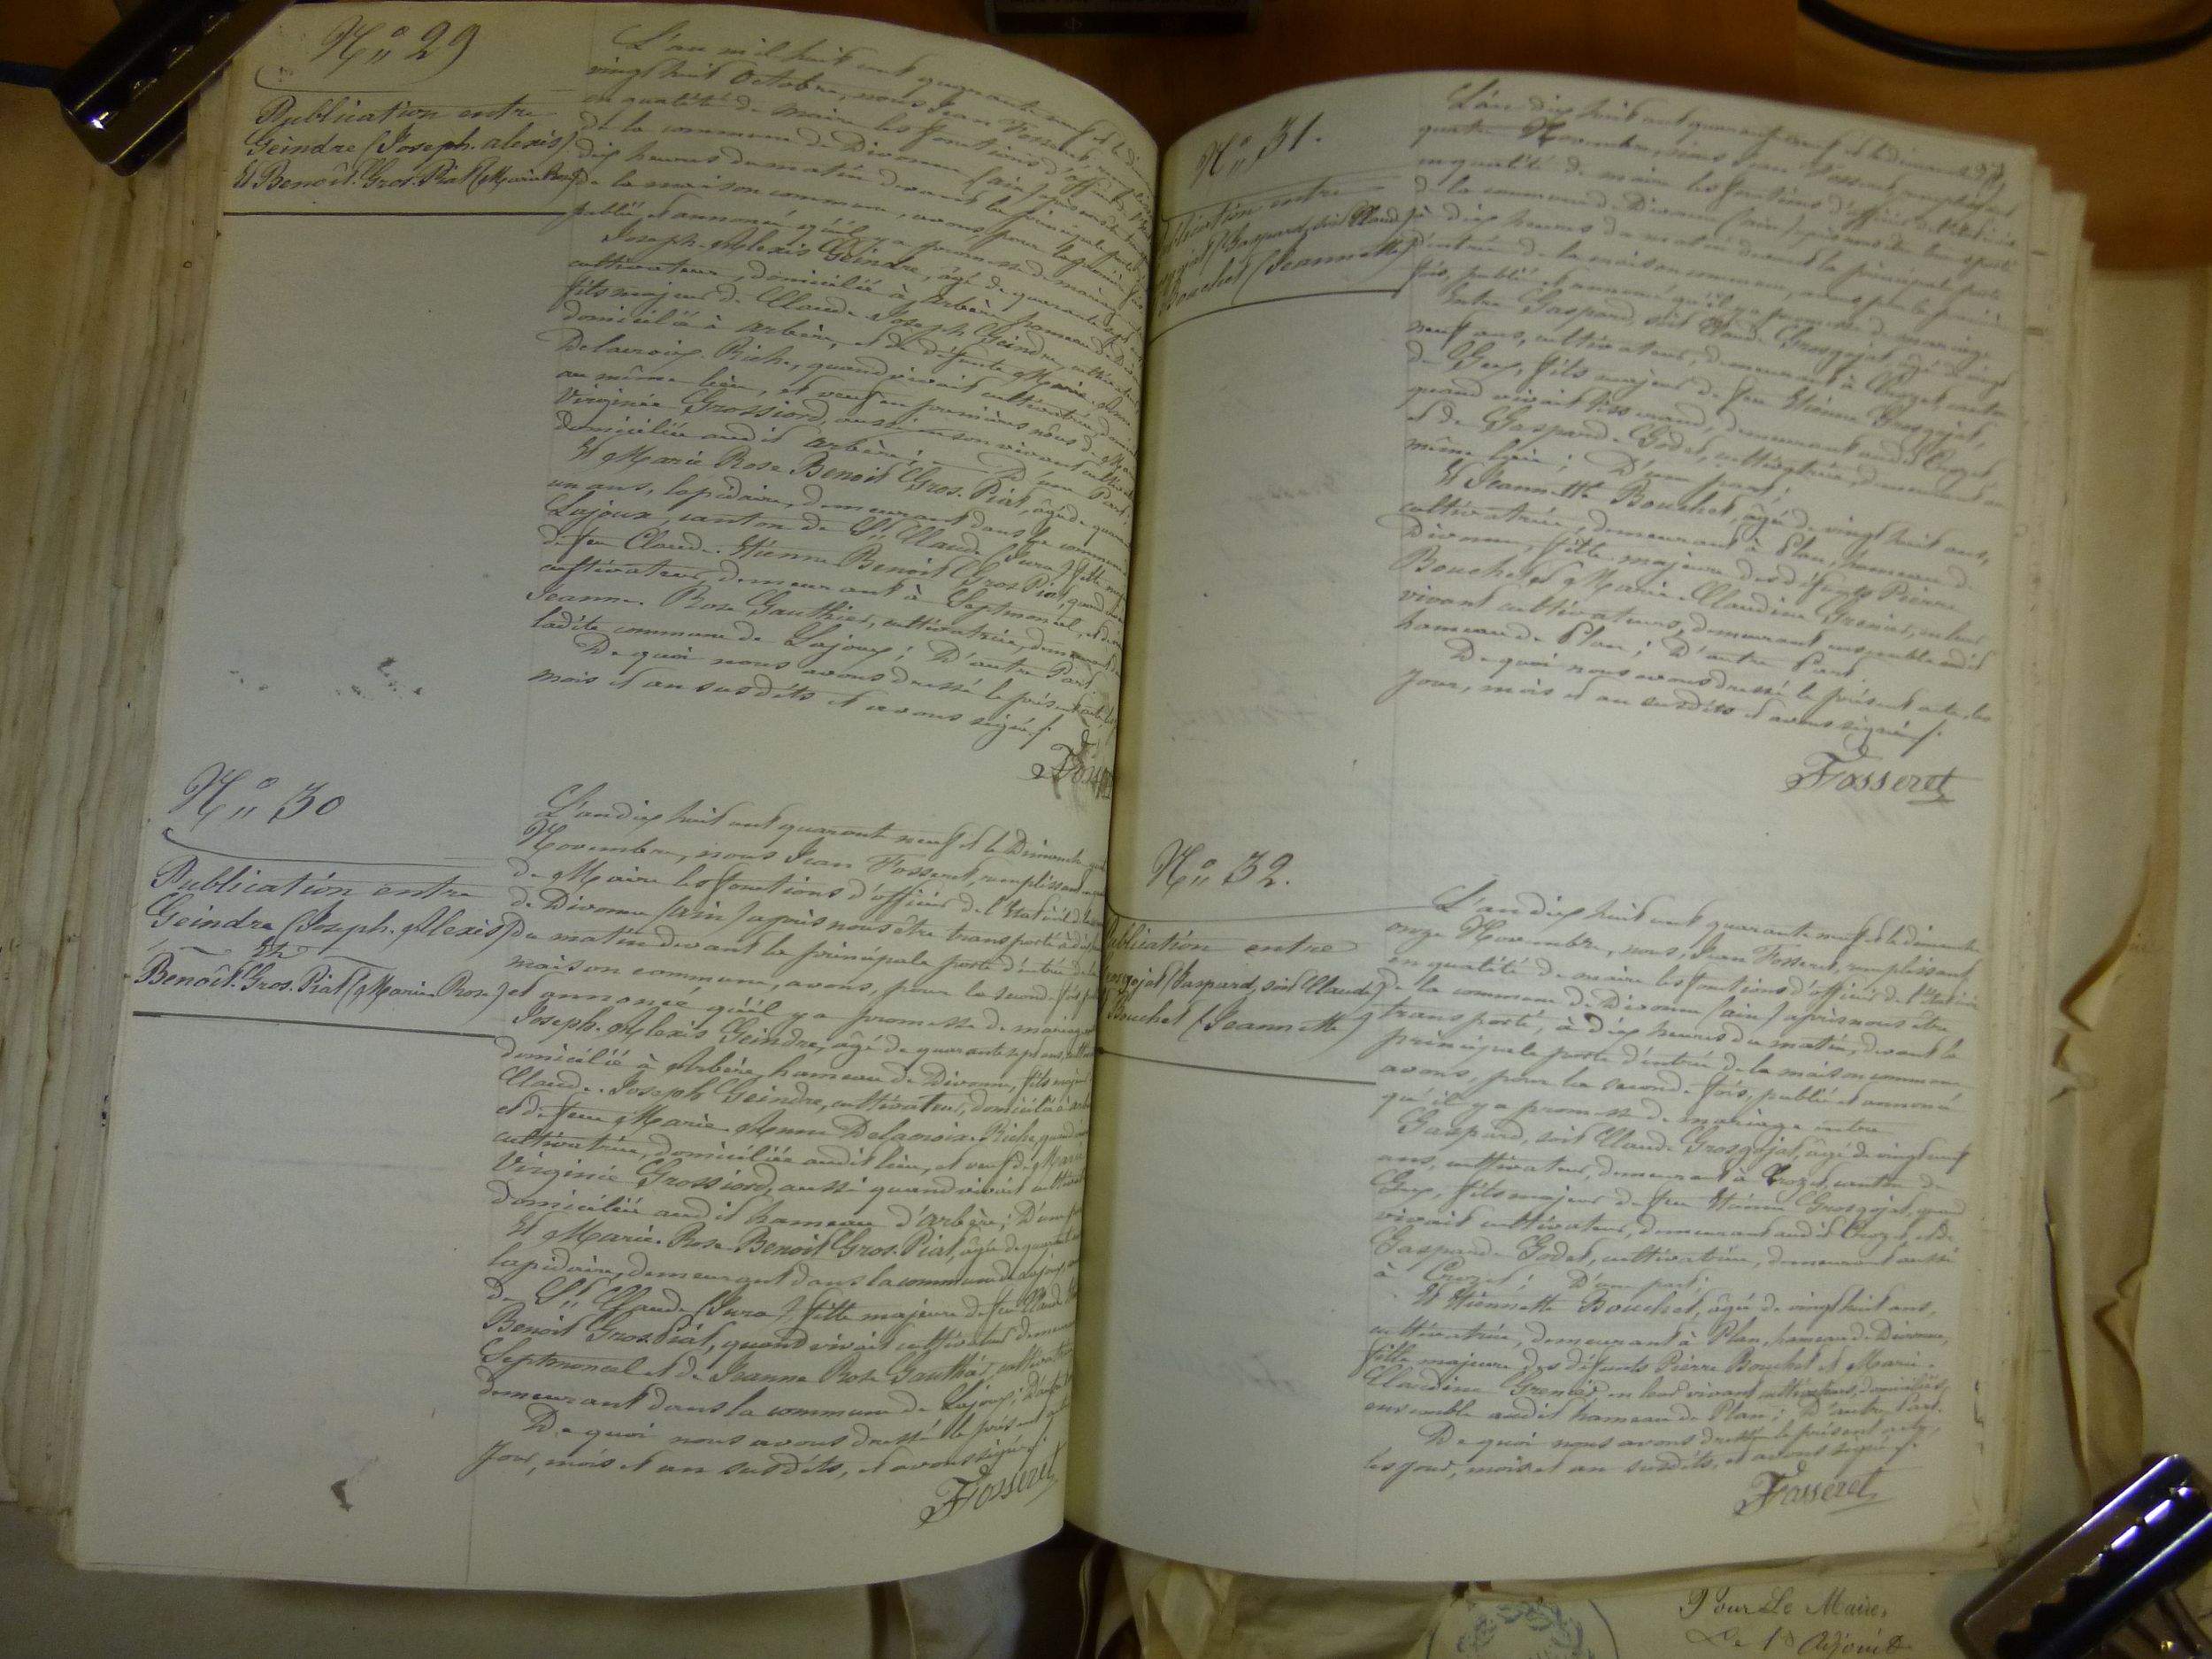 N° 29
Publication entre
Geindre (Joseph. alexis)
Et Benoit. Gros. Piat (Marie Rose)
L'an mil huit cent quarante neuf et le
vingt huit Octobre, nous Jean Fosseret,
en qualité de maire les fonctions d'officier
de la commune de Divonne (ain) après nous être
dix heures du matin devant la principale porte
de la maison commune, avons, pour la première fois
publié et annoncé qu'il y a promesse de mariage
Joseph-Alexis Geindre, âgé de quarante sept ans
cultivateur, domicilié à Arbère, hameau de Divonne
fils majeur de Claude-Joseph Geindre, cultivateur,
domicilié à Arbère, et de défunte Marie-Anne
Delacroix-Riche, quand vivait cultivatrice,
au même lieu, et veuf en premières nôces de
Virginie Grossiord, aussi en son vivant
domiciliée audit Arbère; D'une Part;
Et Marie Rose Benoit Gros. Piat, âgée de quarante
un ans, lapidaire, demeurant dans la commune
Lajoux, canton de St Claude (Jura) fille
de feu Claude-Etienne Benoit Gros Piat, quand
cultivateur, demeurant à Septmoncel, et de
Jeanne-Rose Gauthier, cultivatrice, demeurant
ladite commune de Lajoux; D'autre Part.
De quoi nous avons dressé le présent acte, les
mois et an susdits et avons signé./.
N° 30
Publication entre
Geindre (Joseph. Alexis)
Et
Benoit. Gros. Piat (Marie Rose)
L'an dix huit cent quarante neuf et le Dimanche
Novembre, nous Jean Fosseret, remplissant en
de Maire les fonctions d'officier de l'Etat civil de la
de Divonne (ain) après nous être transporté à dix
du matin devant la principale porte d'entrée de la
maison commune, avons, pour la seconde fois,
et annoncé qu'il y a promesse de mariage
Joseph-Alexis Geindre, âgé de quarante sept ans,
domicilié à Arbère, hameau de Divonne, fils majeur
Claude-Joseph Geindre, cultivateur, domicilié à
et de feue Marie-Anne Delacroix-Riche, quand
cultivatrice, domiciliée audit lieu, et veuf de Marie
Virginie Grossiord, aussi quand vivait
domiciliée audit hameau d'Arbère; D'une
Et Marie. Rose Benoit Gros. Piat, âgée de quarante
lapidaire, demeurant dans la commune de Lajoux,
de St Claude (Jura) fille majeure de feu Claude
Benoit Gros Piat, quand vivait cultivateur
Septmoncel et de Jeanne Rose Gauthier,
demeurant dans la commune de Lajoux; D'autre
De quoi nous avons dressé le présent
Jour, mois et an susdits, et avons signé./.
Fosseret
N° 31.
entre
(Gaspard, soit Claude)
Bouchet (Jeannette)
L'an dix huit cent quarante neuf et le dimanche
quatre Novembre, nous Jean Fosseret, remplissant
en qualité de maire les fonctions d'officier de l'Etat civil
de la commune de Divonne (ain) après nous être transporté
à dix heures du matin devant la principale porte
d'entrée de la maison commune, avons pour la première
fois, publié et annoncé qu'il y a promesse de mariage
Entre Gaspard, soit Claude Grosgojat, âgé de vingt
neuf ans, cultivateur, demeurant à Crozet, canton
de Gex, fils majeur de feu Etienne Grosgojat,
quand vivait tisserand, demeurant audit Crozet,
et de Gasparde Godet, cultivatrice, demeurant au
même lieu; D'une part;
Et Jeannette Bouchet, âgée de vingt huit ans,
cultivatrice, demeurant à Plan, hameau de
Divonne, fille majeure des défunts Pierre
Bouchet et Marie-Claudine Grenier, en leur
vivant cultivateurs, demeurant ensemble audit
hameau de Plan; D'autre Part.
De quoi nous avons dressé le présent acte, les
Jour, mois et an susdits et avons signé./.
Fosseret
N° 32.
Publication entre
(Gaspard, soit Claude)
Bouchet (Jeannette)
L'an dix huit cent quarante neuf et le dimanche
onze Novembre, nous, Jean Fosseret, remplissant
en qualité de maire les fonctions d'officier de l'Etat civil
de la commune de Divonne (ain) après nous être
transporté, à dix heures du matin, devant la
principale porte d'entrée de la maison commune
avons, pour la seconde fois, publié et annoncé
qu'il y a promesse de mariage entre
Gaspard, soit Claude Grosgojat, âgé de vingt neuf
ans, cultivateur, demeurant à Crozet, canton de
Gex, fils majeur de feu Etienne Grosgojat, quand
vivait cultivateur, demeurant audit Crozet, et de
Gasparde Godet, cultivatrice, demeurant aussi
à Crozet; D'une part;
Et Etiennette Bouchet, âgée de vingt huit ans,
cultivatrice, demeurant à Plan, hameau de Divonne,
fille majeure des défunts Pierre Bouchet et Marie-
Claudine Grenier, en leur vivant cultivateurs, domiciliés
ensemble audit hameau de Plan; D'autre Part.
De quoi nous avons dressé le présent acte,
les jour, mois et an susdits, et avons signé./.
Fosseret
Pour Le Maire,
Le 1er Adjoint